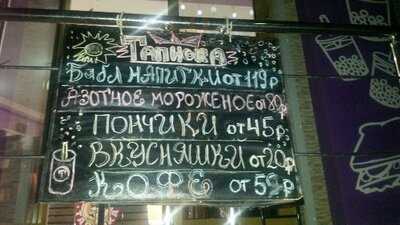 ТАПИОКА
Бабл НАПИТКИ от 119р
АЗОТНОЕ МОРОЖЕНОЕ от 80р
ПОНЧИКИ от 45р
ВКУСНЯШКИ от 20р
КОФЕ от 59р